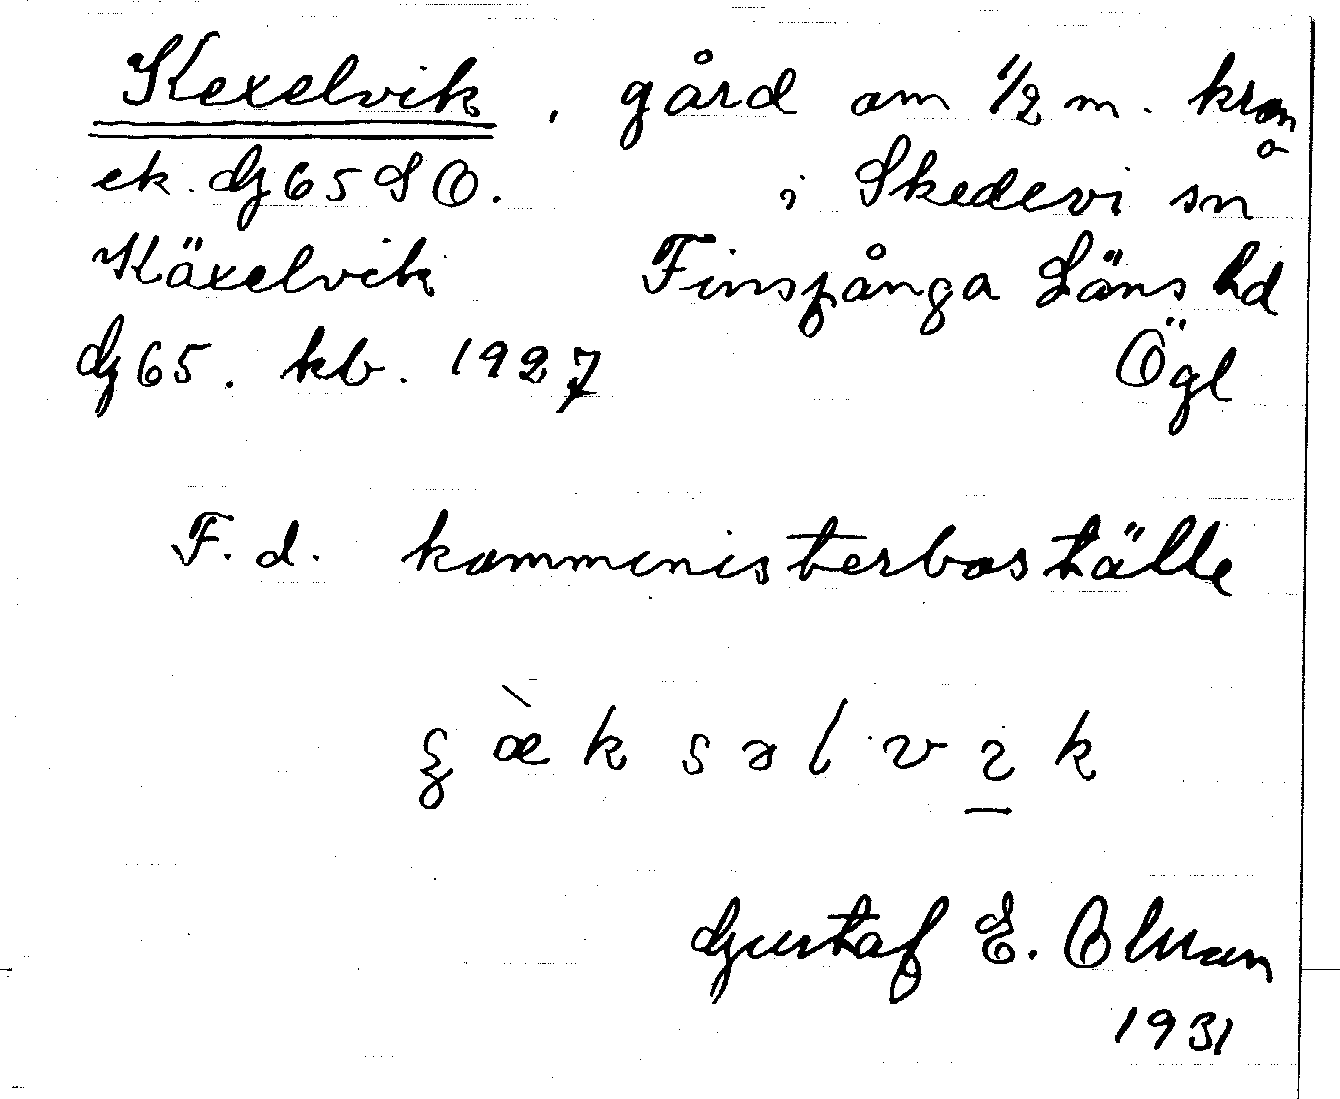 Kexelvik, gård om 1/2 m. kron
ek. G65SO. i Skedevi sn
Käxelvik Finspånga Läns hd
G65. kb. 1927 Ögl
F. d. komministerboställe
kselvik
Gustaf E. Olman
1931